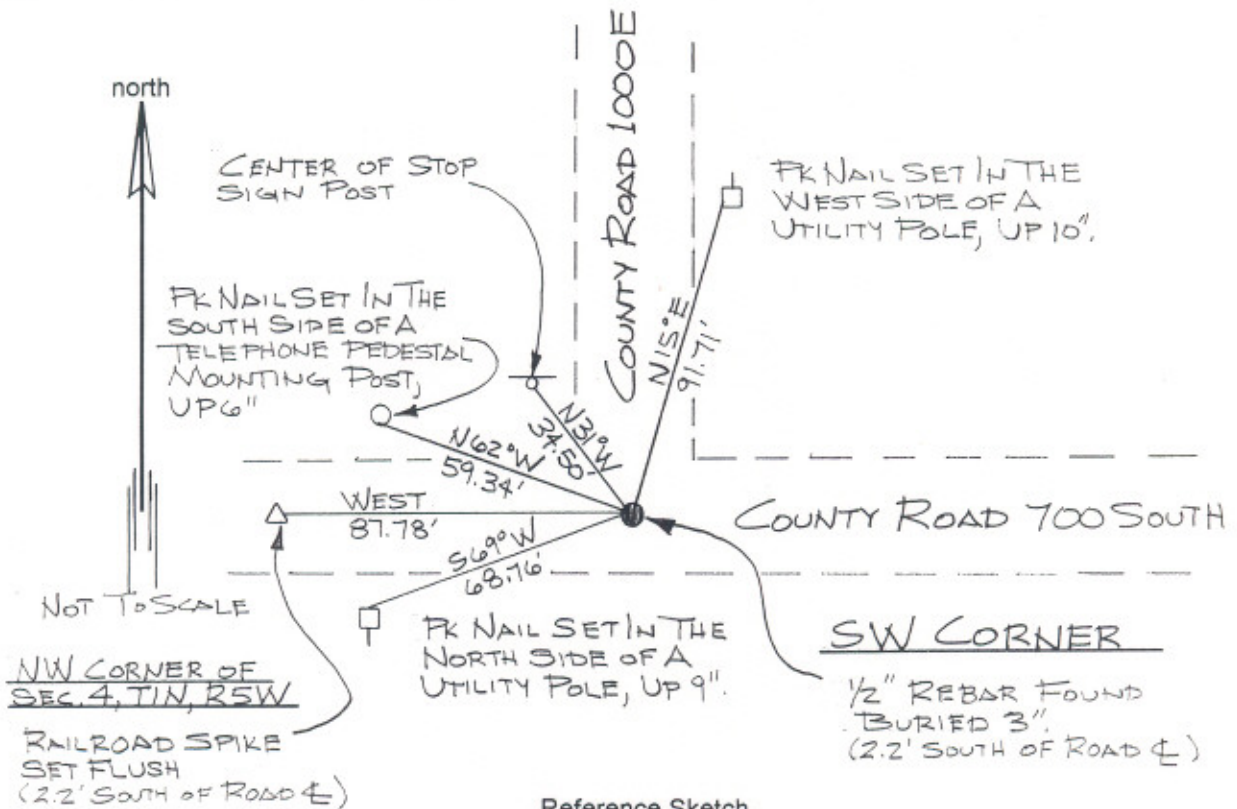 north
CENTER OF STOP
SIGN POST
COUNTY ROAD 1000E
PK NAIL SET IN THE
WEST SIDE OF A
UTILITY POLE, UP 10".
PK NAIL SET IN THE
SOUTH SIDE OF A
TELEPHONE PEDESTAL
MOUNTING POST,
UP 6"
N15°E
91.71'
N31°W
34.50'
N62°W
59.34'
WEST
87.78'
S69°W
68.76'
COUNTY ROAD 700 SOUTH
NOT TO SCALE
PK NAIL SET IN THE
NORTH SIDE OF A
UTILITY POLE, UP 9".
SW CORNER
1/2" REBAR FOUND
BURIED 3".
(2.2' SOUTH OF ROAD ℄)
NW CORNER OF
SEC. 4, T1N, R5W
RAILROAD SPIKE
SET FLUSH
(2.2' SOUTH OF ROAD ℄)
Reference Sketch